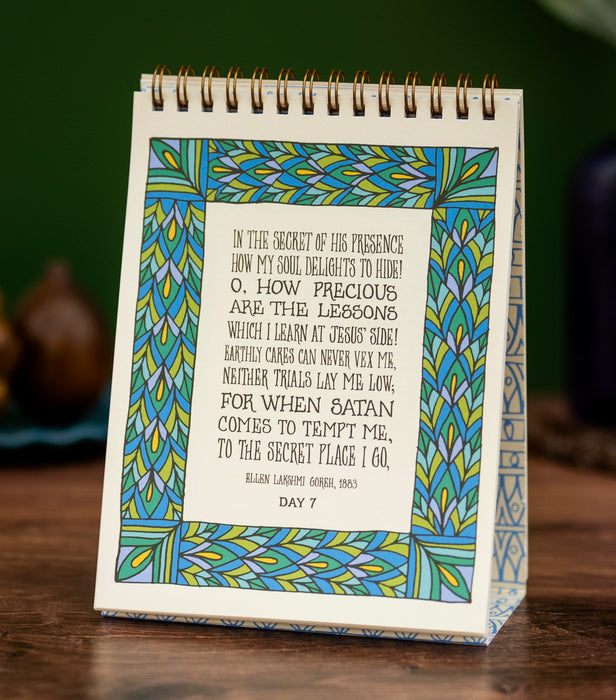 IN THE SECRET OF HIS PRESENCE
HOW MY SOUL DELIGHTS TO HIDE!
O, HOW PRECIOUS
ARE THE LESSONS
WHICH I LEARN AT JESUS' SIDE!
EARTHLY CARES CAN NEVER VEX ME,
NEITHER TRIALS LAY ME LOW;
FOR WHEN SATAN
COMES TO TEMPT ME,
TO THE SECRET PLACE I GO,
ELLEN LAKSHMI GOREH, 1883
DAY 7